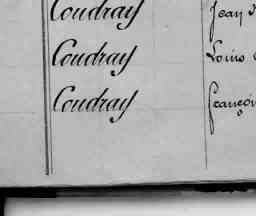 Coudray Jean
Coudray Louis
Coudray François